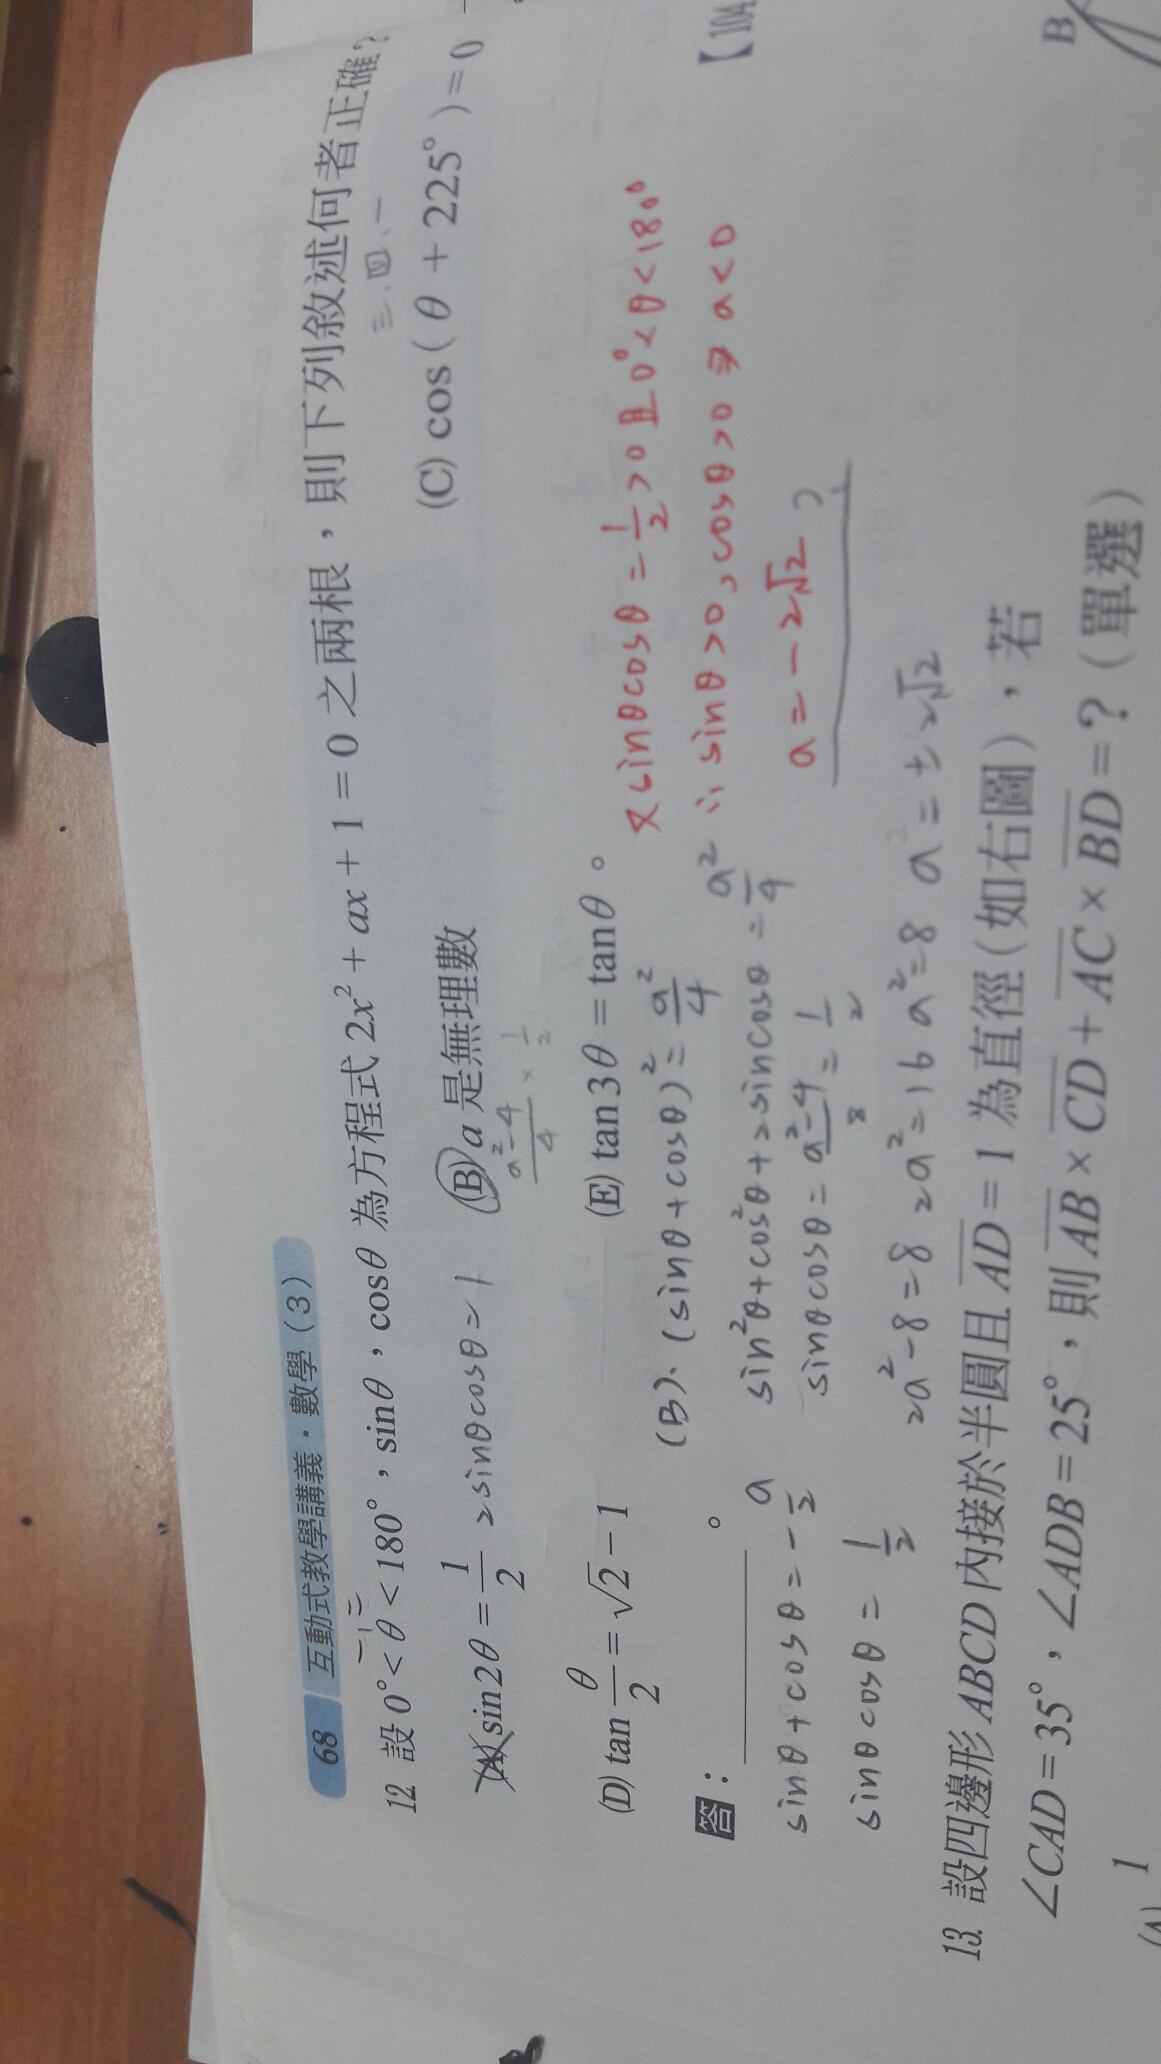 68 互動式教學講義.數學(3)
一、二
12. 設 0° < θ < 180°，sinθ，cosθ 為方程式 2x² + ax + 1 = 0 之兩根，則下列敘述何者正確？
三、四、一
(A) sin2θ = 1/2 2sinθcosθ = 1 (B) a 是無理數 (C) cos(θ + 225°) = 0
a²-4/4 × 1/2
(D) tan θ/2 = √2 − 1 (E) tan3θ = tanθ。
答：＿＿＿＿。
【104
sinθ + cosθ = -a/2
sinθ cosθ = 1/2
(B). (sinθ + cosθ)² = a²/4
sin²θ + cos²θ + 2sincosθ = a²/4
sinθcosθ = a²-4/8 = 1/2
2a² - 8 = 8 2a² = 16 a² = 8 a = ±2√2
又sinθcosθ = 1/2 > 0 且 0° < θ < 180°
∴ sinθ > 0, cosθ > 0 ⇒ a < 0
a = -2√2 ?
13. 設四邊形 ABCD 內接於半圓且 AD = 1 為直徑（如右圖），若
∠CAD = 35°，∠ADB = 25°，則 AB × CD + AC × BD = ？（單選）
B
(A) 1